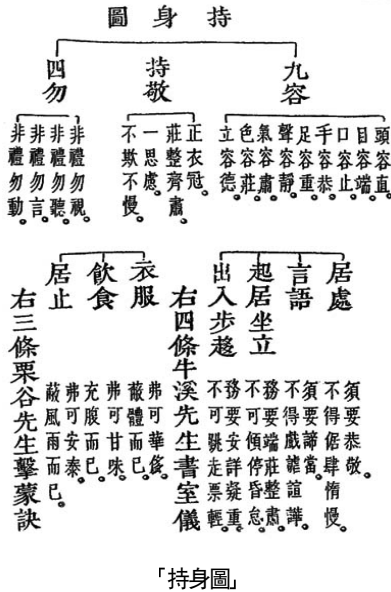 持身圖
九容
頭容直。
目容端。
口容止。
手容恭。
足容重。
聲容靜。
氣容肅。
色容莊。
立容德。
持敬
正衣冠。
莊整齊肅。
一思慮。
不欺不慢。
四勿
非禮勿視。
非禮勿聽。
非禮勿言。
非禮勿動。
居處
須要恭敬。
不得倨肆惰慢。
言語
須要諦當。
不得戲謔諠譁。
起居坐立
務要端莊整肅。
不可傾停昏怠。
出入步趨
務要安詳凝重。
不可驟走票輕。
右四條牛溪先生書室儀
衣服
弗可華侈。
蔽體而已。
飲食
弗可甘味。
充腹而已。
居止
弗可安泰。
蔽風雨而已。
右三條栗谷先生擊蒙訣
「持身圖」